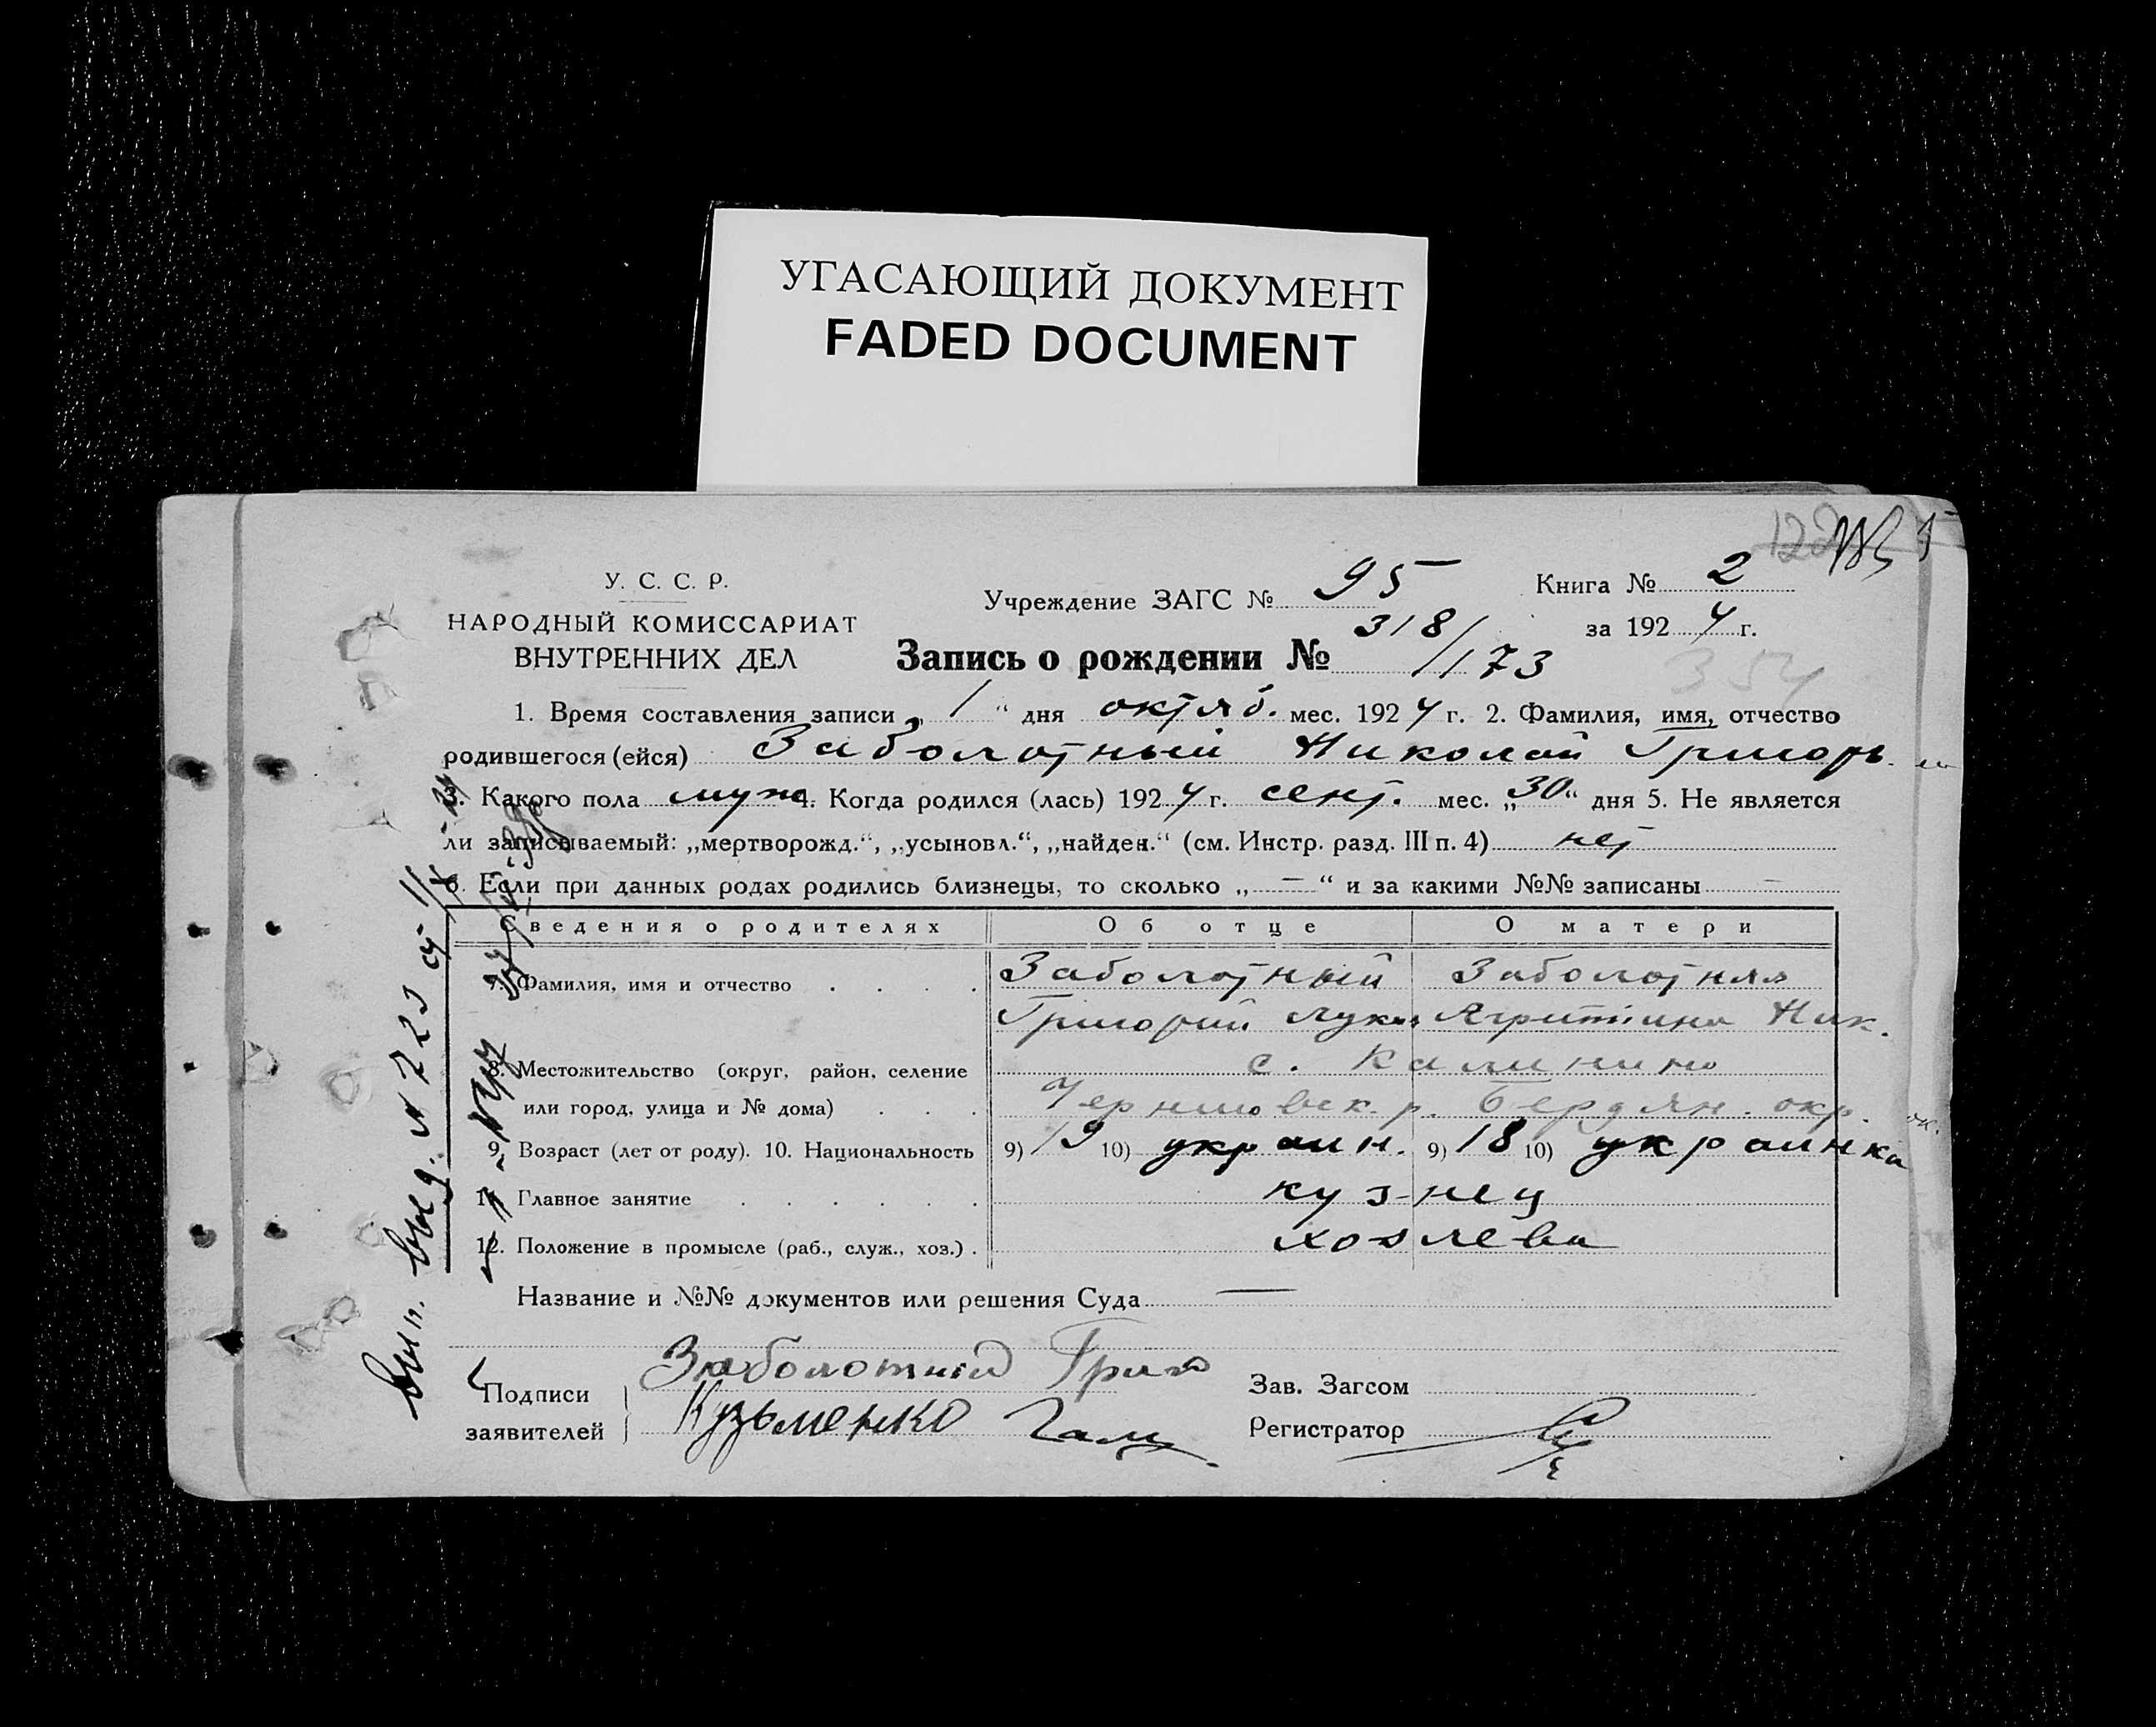 УГАСАЮЩИЙ ДОКУМЕНТ
FADED DOCUMENT
У. С. С. Р.
НАРОДНЫЙ КОМИССАРИАТ
ВНУТРЕННИХ ДЕЛ
Учреждение ЗАГС № 95
Книга № 2
за 1924 г.
Запись о рождении № 318/173
354
1. Время составления записи „1“ дня октяб. мес. 1924 г. 2. Фамилия, имя, отчество
родившегося (ейся) Заболотный Николай Григорь
3. Какого пола муж 4. Когда родился (лась) 1924 г. сент. мес. „30“ дня 5. Не является
ли записываемый: „мертворожд.“, „усыновл.“, „найден.“ (см. Инстр. разд. III п. 4) нет
6. Если при данных родах родились близнецы, то сколько „—“ и за какими №№ записаны —
Сведения о родителях Об отце О матери
7. Фамилия, имя и отчество Заболотный Заболотная
Григорий Лукич Агрипина Ник.
8. Местожительство (округ, район, селение с. Калинино
или город, улица и № дома) Черниговск. р. Бердян. окр.
9. Возраст (лет от роду). 10. Национальность 9) 19 10) украин. 9) 18 10) украинка
11. Главное занятие кузнец
12. Положение в промысле (раб., служ., хоз.) хозяева
Название и №№ документов или решения Суда —
Подписи заявителей
Заболотній Григ
Кузьменко
Зав. Загсом
Регистратор